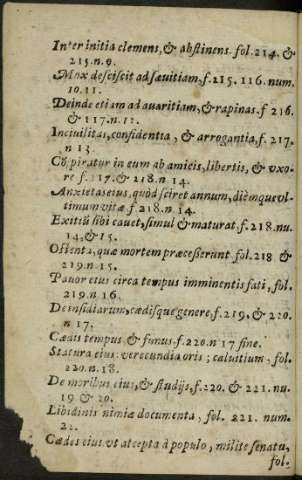 Inter initia clemens, & abstinens. fol. 214. &
215. n. 9.
Mox desciscit ad sævitiam, f. 215. 116. num.
10. 11.
Deinde etiam ad avaritiam, & rapinas. f. 216
& 117. n. 12.
Incivilitas, confidentia, & arrogantia, f. 217.
n 13.
Cõspiratur in eum ab amicis, libertis, & vxo-
re f. 217. & 218. n 14.
Anxietas eius, quòd sciret annum, diémque vl-
timum vitæ f. 218. n 14.
Exitiũ sibi cavet, simul & maturat, f. 218. nu.
14, & 15.
Ostenta, quæ mortem præcesserunt. fol. 218 &
219. n. 15.
Pavor eius circa tempus imminentis fati, fol.
219. n 16.
De insidiarum, cædisque genere, f. 219. & 220.
n 17.
Cædis tempus & funus. f. 220. n 17 fine.
Statura eius: verecundia oris; caluitium, fol.
220. n. 18.
De moribus eius, & studijs, f. 220. & 221. nu.
19 & 20.
Libidinis nimiæ documenta, fol. 221. num.
Cædes eius vt accepta à populo, milite senatu,
fol.